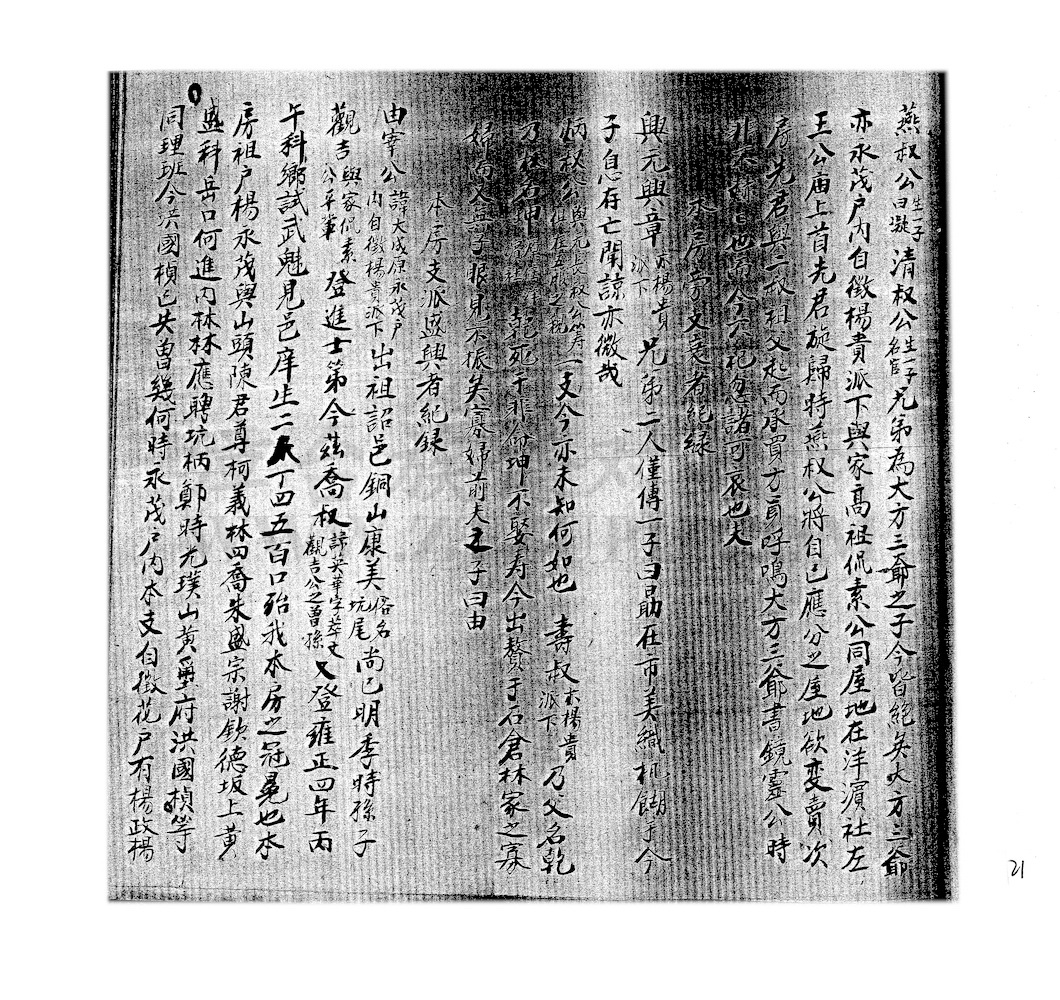 燕叔公生一子曰嶷清叔公生一子名爵兄弟為大方三爺之子今皆絕矣大方三爺
亦永茂戶內自徵楊貴派下與家高祖侃素公同屋地在洋濱社左
王公庙上首先君旋歸時燕叔公將自己應分之厝地欲变賣次
房先君與二叔祖父起而承買方首呼鳴大方三爺書鏡靈公時
也當今不祀忽諸可哀也夫
本房旁支衰者紀録
興元興章亦楊貴派下兄弟二人僅傳一子曰勗在市美織机餬手今
子息存亡閴諒亦微哉
炳叔公與元長叔公等一支今亦未知何如也 壽叔亦楊貴派下乃父名乾
乃叔名坤乾死于非命坤不娶寿今出贅于石倉林家之寡
婦而又無子眼見不振矣寡婦前夫之子曰由
本房支派盛興者紀録
由宰公諱大成原永茂戶內自徵楊貴派下出祖詔邑銅山康美俗名坑尾尚已明季時孫子
觀吉與家侃素公平輩登進士第今茲喬叔諱英華字萃丈觀吉公之曾孫又登雍正四年丙
午科鄉試武魁見邑庠生二人丁四五百口殆我本房之冠冕也本
房祖户楊永茂與山頭陳君尊柯義林四喬朱盛宗謝欽德坂上黄
盛科岳口何進內林林應聘坑柄鄭時光璞山黄璽府洪國楨等
同理班今洪國楨已失曾幾何時永茂户內本支自徵花户有楊政楊
21